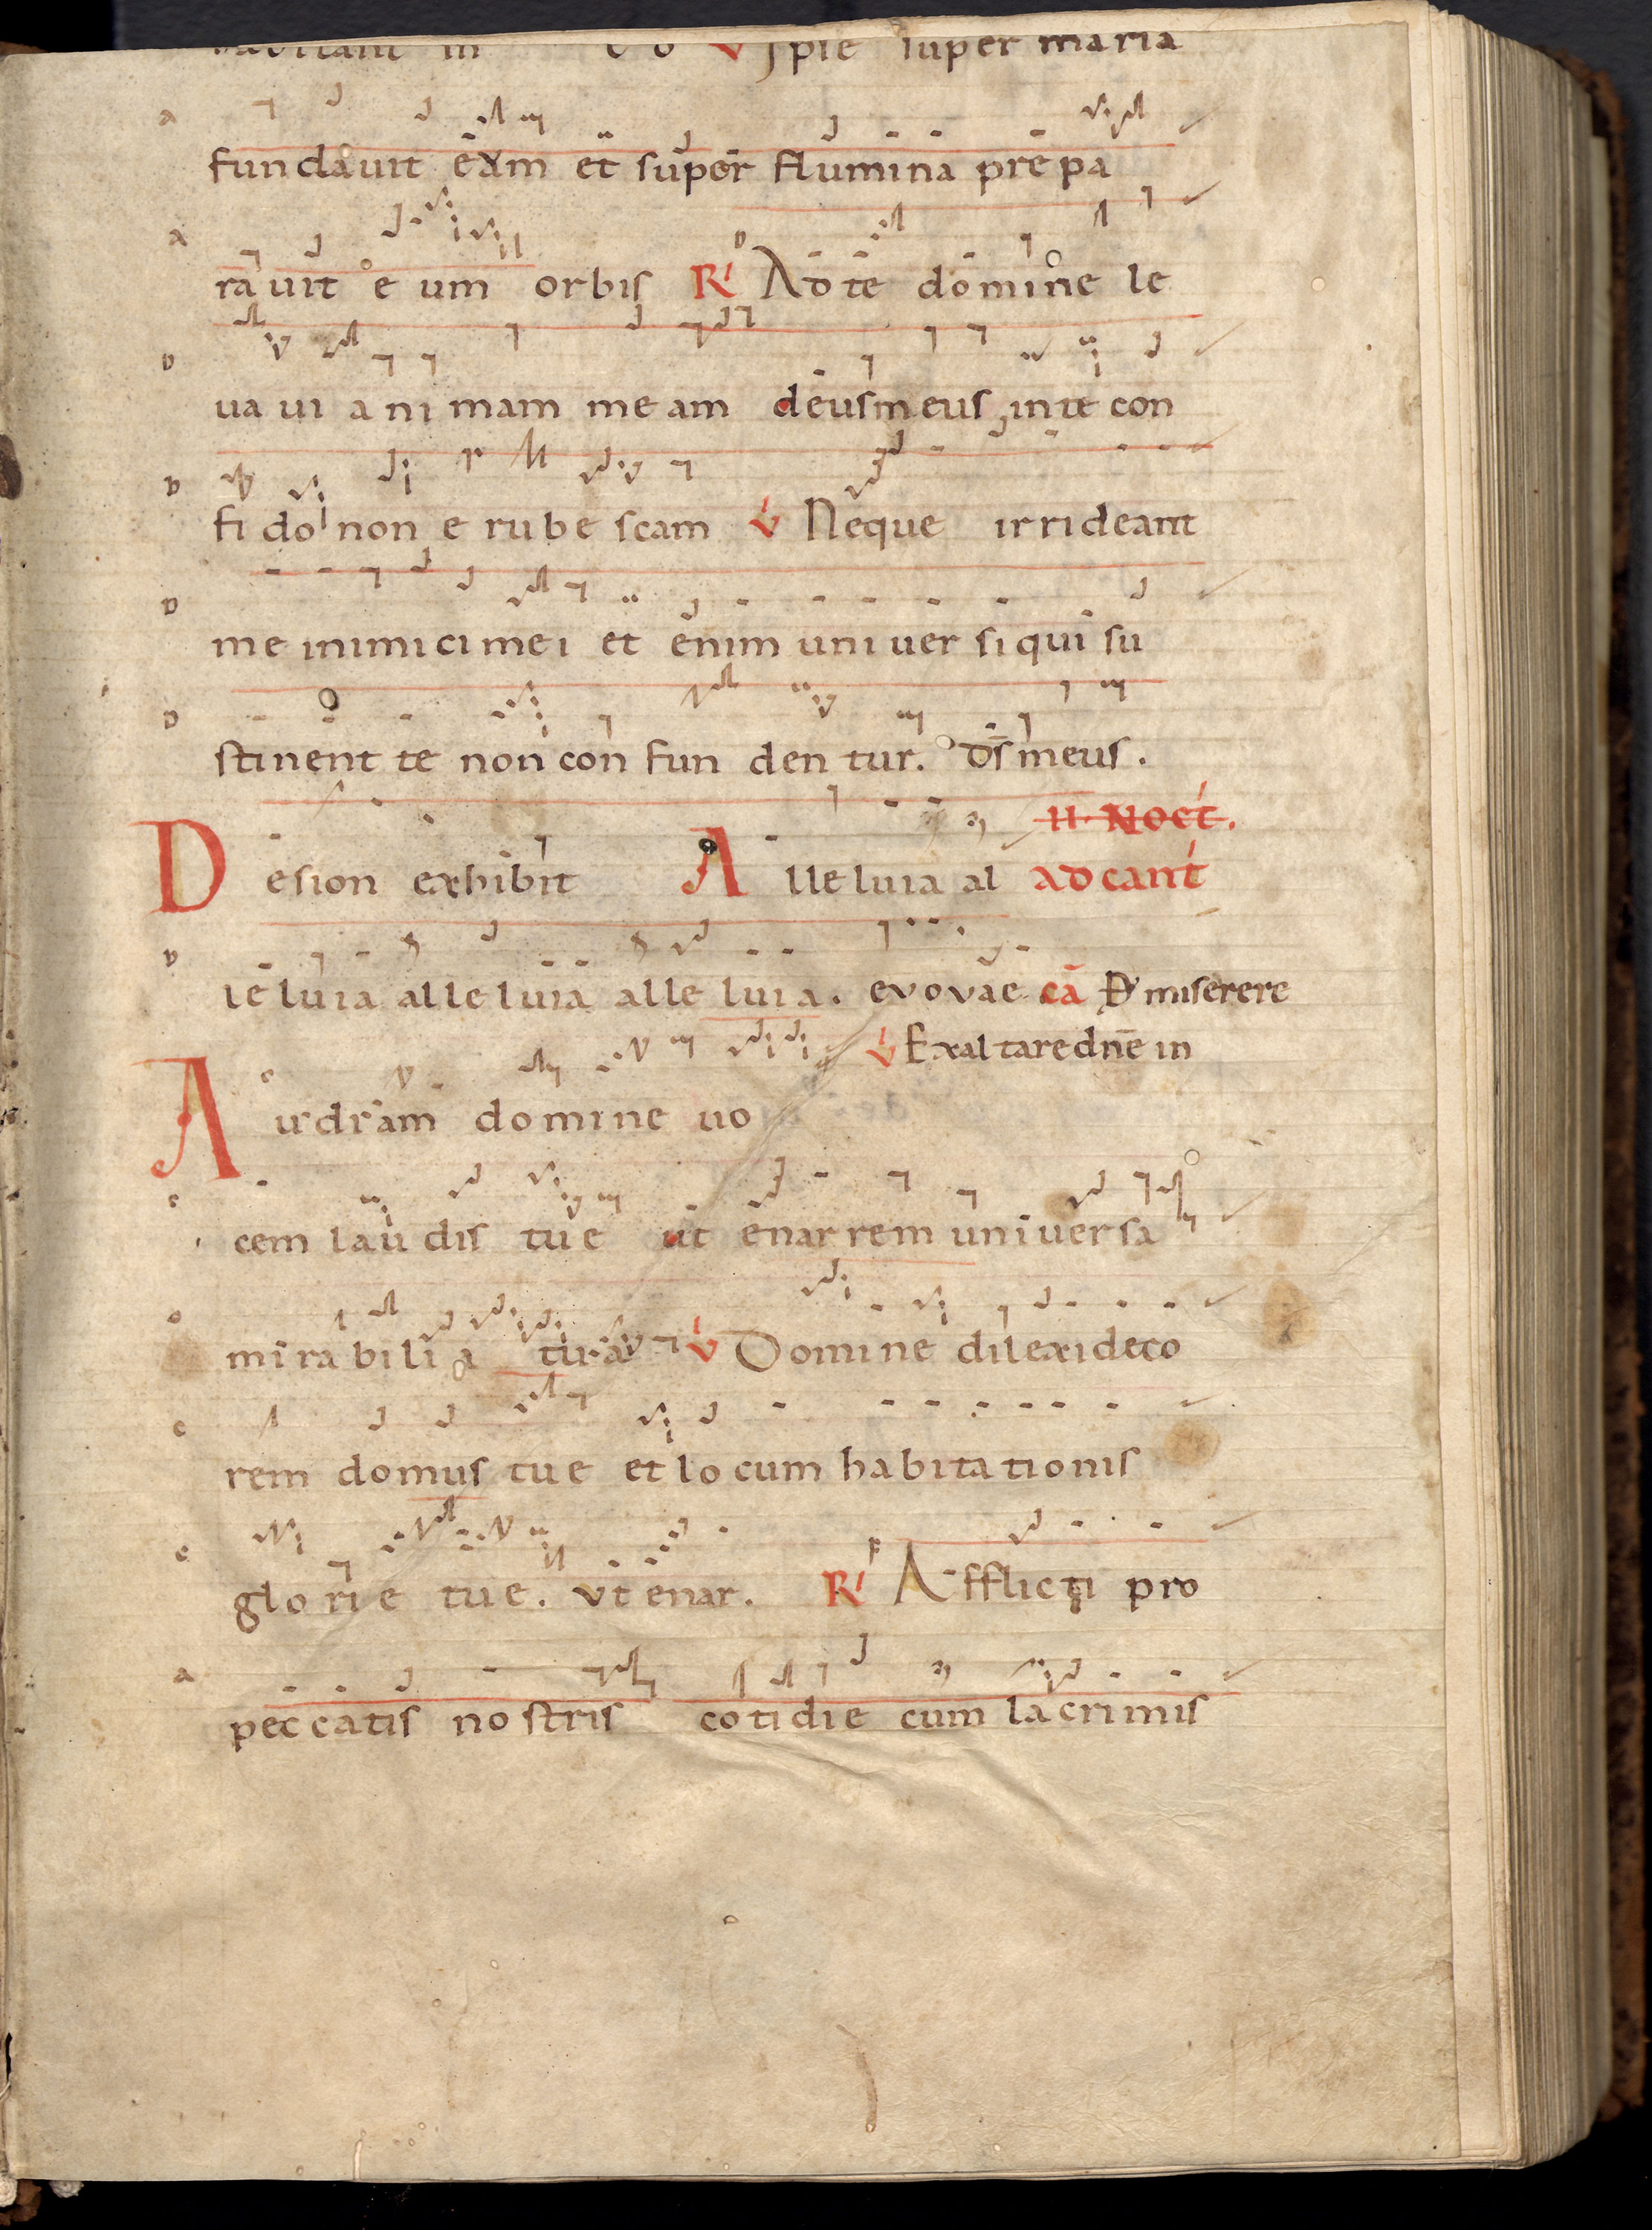 habitant in eo V Ipse super maria
fundauit eam et super flumina prepa
rauit eum orbis R Ad te domine le
uaui animam meam deus meus in te con
fido non erubescam V Neque irrideant
me inimici mei et enim uniuersi qui su
stinent te non confundentur. ds meus.
II. NOCT.
De sion exhibit Alleluia al ad cant
leluia alleluia alleluia. evovae ca Ps miserere
V Exaltare dne in
Audiam domine uo
cem laudis tue ut enarrem uniuersa
mirabilia tua V Domine dilexi deco
rem domus tue et locum habitationis
glorie tue. ut enar. R Afflicti pro
peccatis nostris cotidie cum lacrimis